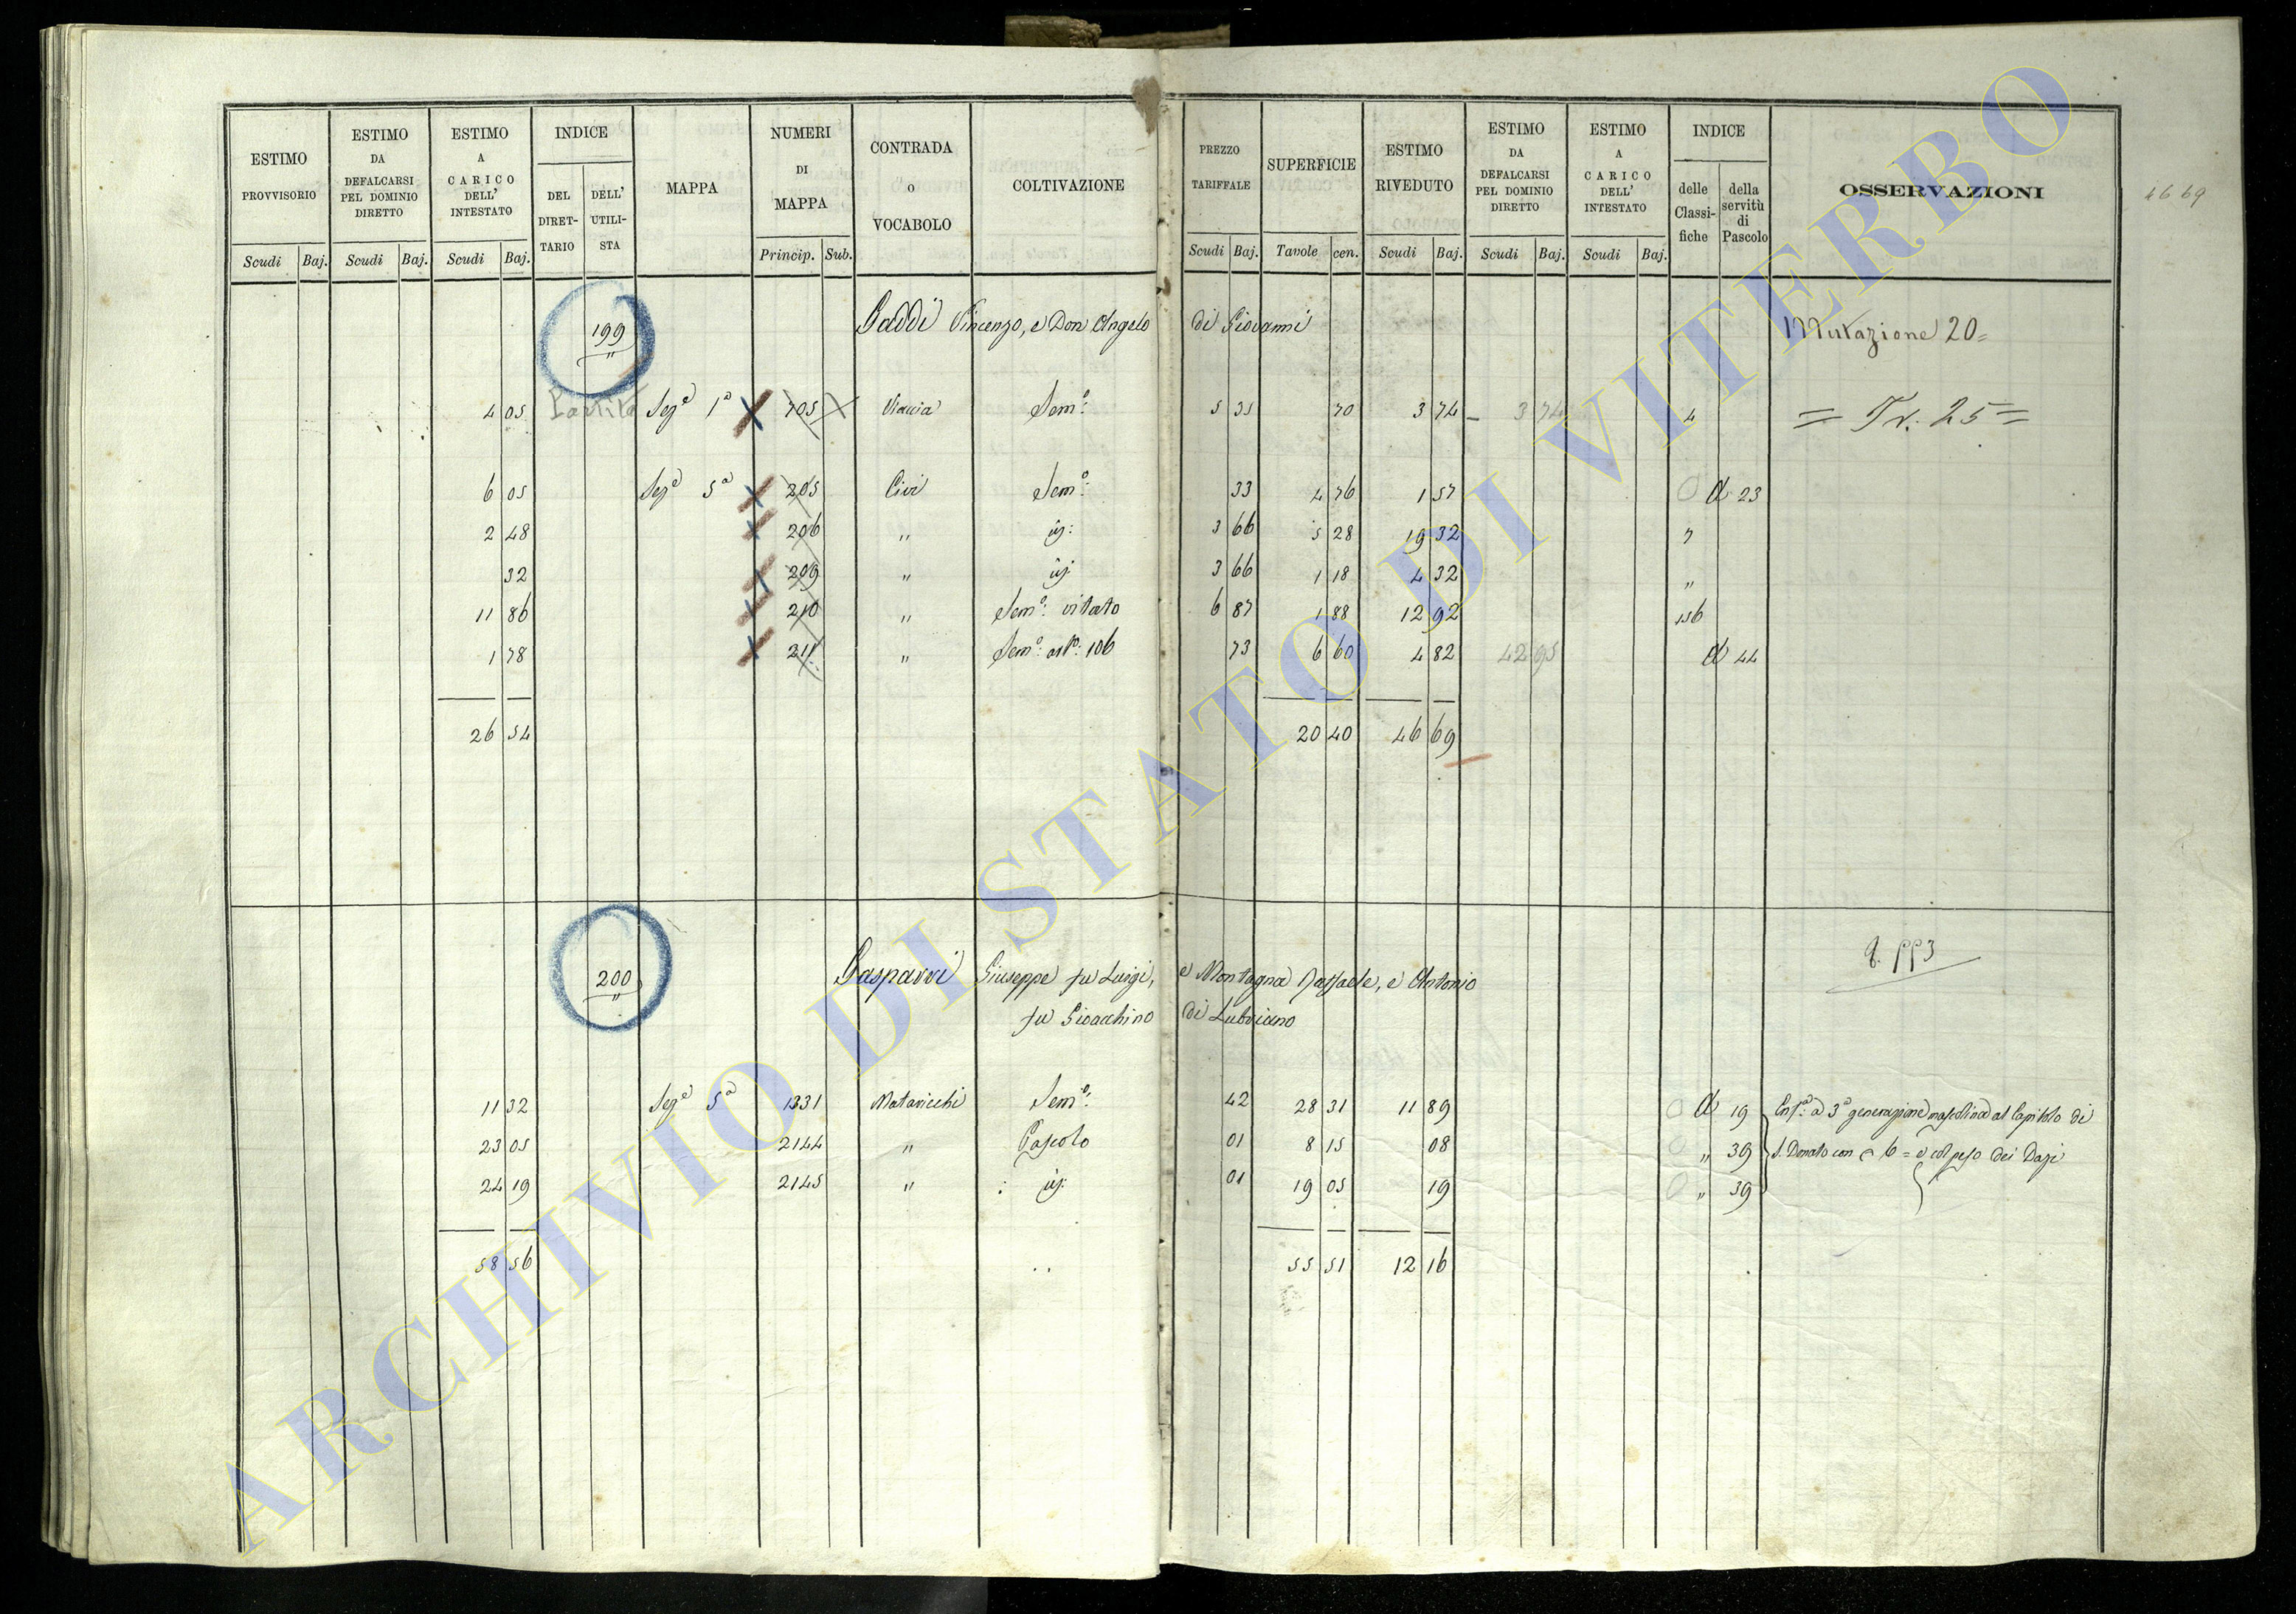 ESTIMO PROVVISORIO
ESTIMO DA DEFALCARSI PEL DOMINIO DIRETTO
ESTIMO A CARICO DELL' INTESTATO
INDICE
DEL DIRET-TARIO
DELL' UTILI-STA
MAPPA
NUMERI DI MAPPA
CONTRADA O VOCABOLO
COLTIVAZIONE
PREZZO TARIFFALE
SUPERFICIE
ESTIMO RIVEDUTO
ESTIMO DA DEFALCARSI PEL DOMINIO DIRETTO
ESTIMO A CARICO DELL' INTESTATO
INDICE
delle Classi-fiche
della servitù di Pascolo
OSSERVAZIONI
46 69
Scudi Baj. Scudi Baj. Scudi Baj. Princip. Sub. Scudi Baj. Tavole cen. Scudi Baj. Scudi Baj. Scudi Baj.
199 Gaddi Vincenzo, e Don Angelo di Giovanni Mutazione 20=
4 05 Partita Seze 1a 705 Viaccia Semo: 5 35 70 3 74 – 3 74 4 = Tr. 25 =
6 05 Seze 5a 205 Civi Semo: 33 4 76 1 57 0 A 23
2 48 206 " id: 3 66 5 28 19 32 7
32 209 " id: 3 66 1 18 4 32 "
11 86 210 " Semo: vitato 6 87 1 88 12 92 156
1 78 211 " Semo: 106 73 6 60 4 82 42 95 A 44
26 54 20 40 46 69
200 Gasparri Giuseppe fu Luigi, e Montagna Raffaele, e Antonio
fu Gioacchino di Lubriano
11 32 Seze 5a 1331 Mataricchi Semo: 42 28 31 11 89 0 A 19 a 3a generazione mascolina al Capitolo di
23 05 2144 " Pascolo 01 8 15 08 0 " 39 S. Donato con 6 = e col peso dei Dazi
24 19 2145 " id: 01 19 05 19 0 " 39
58 56 55 51 12 16
ARCHIVIO DI STATO DI VITERBO